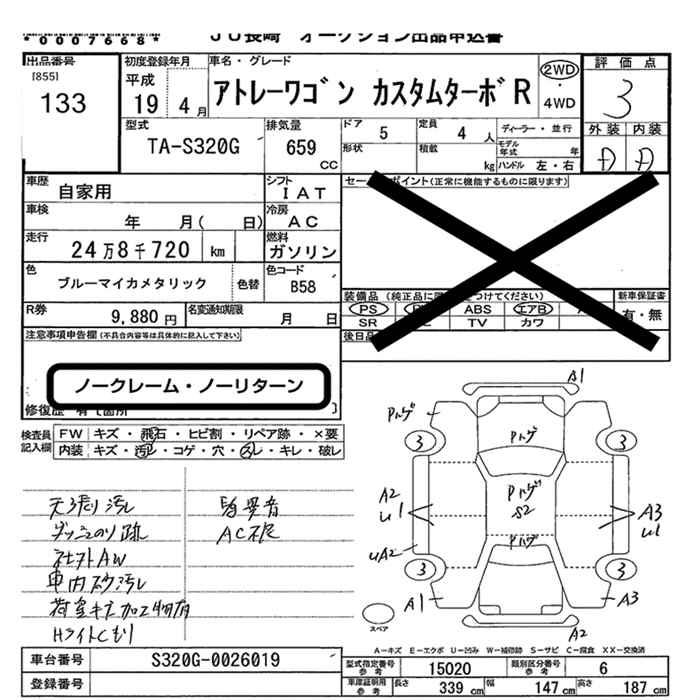 *0007668*
JU長崎 オークション出品申込書
出品番号
[855]
133
初度登録年月
平成
19 4月
車名・グレード
アトレーワゴン カスタムターボR
2WD
・
4WD
評価点
3
型式
TA-S320G
排気量
659
CC
ドア
5
定員
4 人
ディーラー・並行
形状
積載
kg
モデル年式
年
ハンドル 左・右
外装 内装
A A
車歴
自家用
シフト
IAT
セールスポイント(正常に機能するものに限ります)
車検
年 月( 日)
冷房
AC
走行
24万8千720 km
燃料
ガソリン
色
ブルーマイカメタリック
色替
色コード
B58
装備品 (純正品に つけてください)
新車保証書
PS ABS エアB
有・無
SR TV カワ
R券
9,880円
名変通知期限
月 日
後日品
注意事項申告欄(不具合内容等は具体的に記入して下さい)
ノークレーム・ノーリターン
修復歴 有 [箇所 ]
検査員記入欄
FW キズ・飛石・ヒビ割・リペア跡・×要
内装 キズ・汚レ・コゲ・穴・スレ・キレ・破レ
天張り汚レ
ダッシュのり跡
社外AW
車内スレ汚レ
荷室キズ加工物有
Hライトくもり
異音
AC不良
A1
Pハゲ
Pハゲ
3 3
A2
U1
Pハゲ
S2
A3
U1
UA2
Pハゲ
3 3
A1
A3
A2
スペア
A-キズ E-エクボ U-凹み W-補修跡 S-サビ C-腐食 XX-交換済
車台番号
S320G-0026019
登録番号
型式指定番号
参考
15020
類別区分番号
参考
6
車庫証明用
参考
長さ 339 cm 幅 147 cm 高さ 187 cm